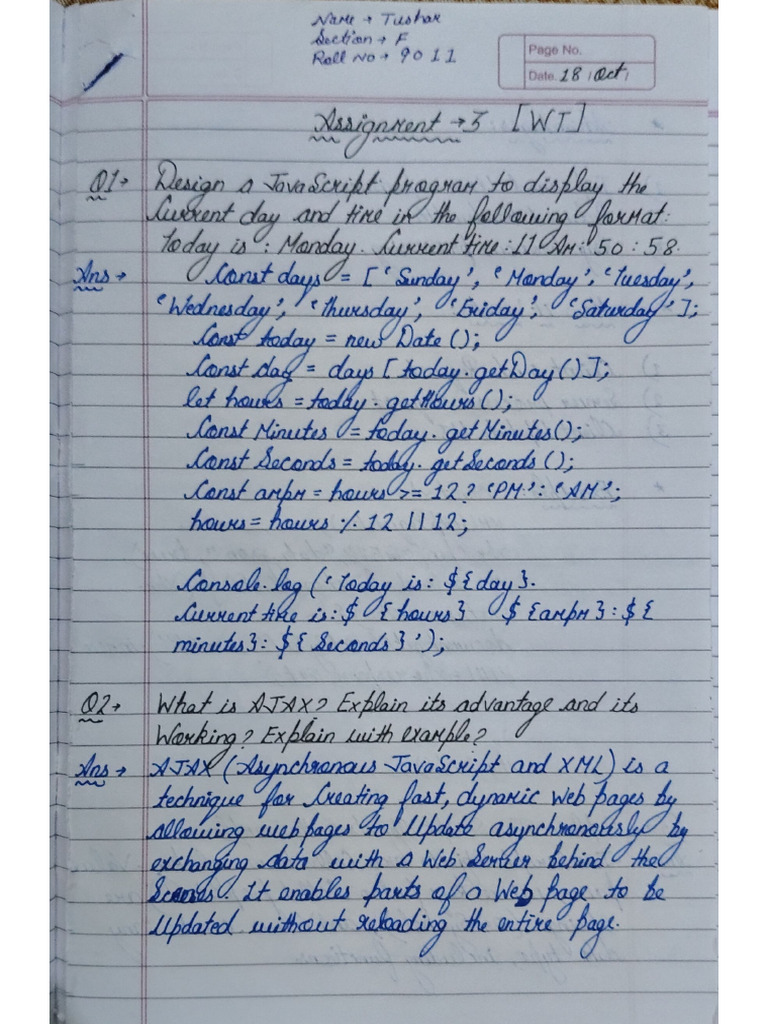 Name → Tushar
Section → F
Roll No → 9011
Page No.
Date. 18 / Oct /
Assignment → 3 [WT]
Q1 → Design a JavaScript program to display the
Current day and time in the following format:
Today is : Monday. Current time : 11 AM : 50 : 58.
Ans → Const days = ['Sunday', 'Monday', 'Tuesday',
'Wednesday', 'Thursday', 'Friday', 'Saturday'];
Const today = new Date();
Const day = days [today.getDay()];
let hours = today.getHours();
Const Minutes = today.getMinutes();
Const Seconds = today.getSeconds();
Const ampm = hours >= 12 ? 'PM' : 'AM';
hours = hours % 12 || 12;
Console.log ('Today is: ${day}.
Current time is: $ {hours} $ {ampm} : ${
minutes} : ${Seconds}');
Q2 → What is AJAX? Explain its advantage and its
Working? Explain with example?
Ans → AJAX (Asynchronous JavaScript and XML) is a
technique for Creating fast, dynamic Web pages by
allowing web pages to Update asynchronously by
exchanging data with a Web Server behind the
Scenes. It enables parts of a Web page to be
Updated without reloading the entire page.